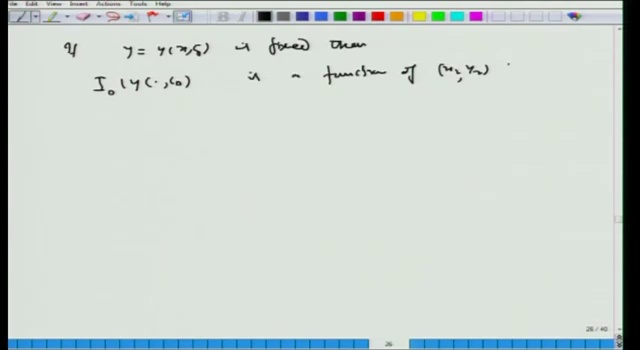 File Edit View Insert Actions Tools Help
If y = y(x, s) is fixed then
I₀(y(·, s)) is a function of (x₂, y₂)
26 / 40
26